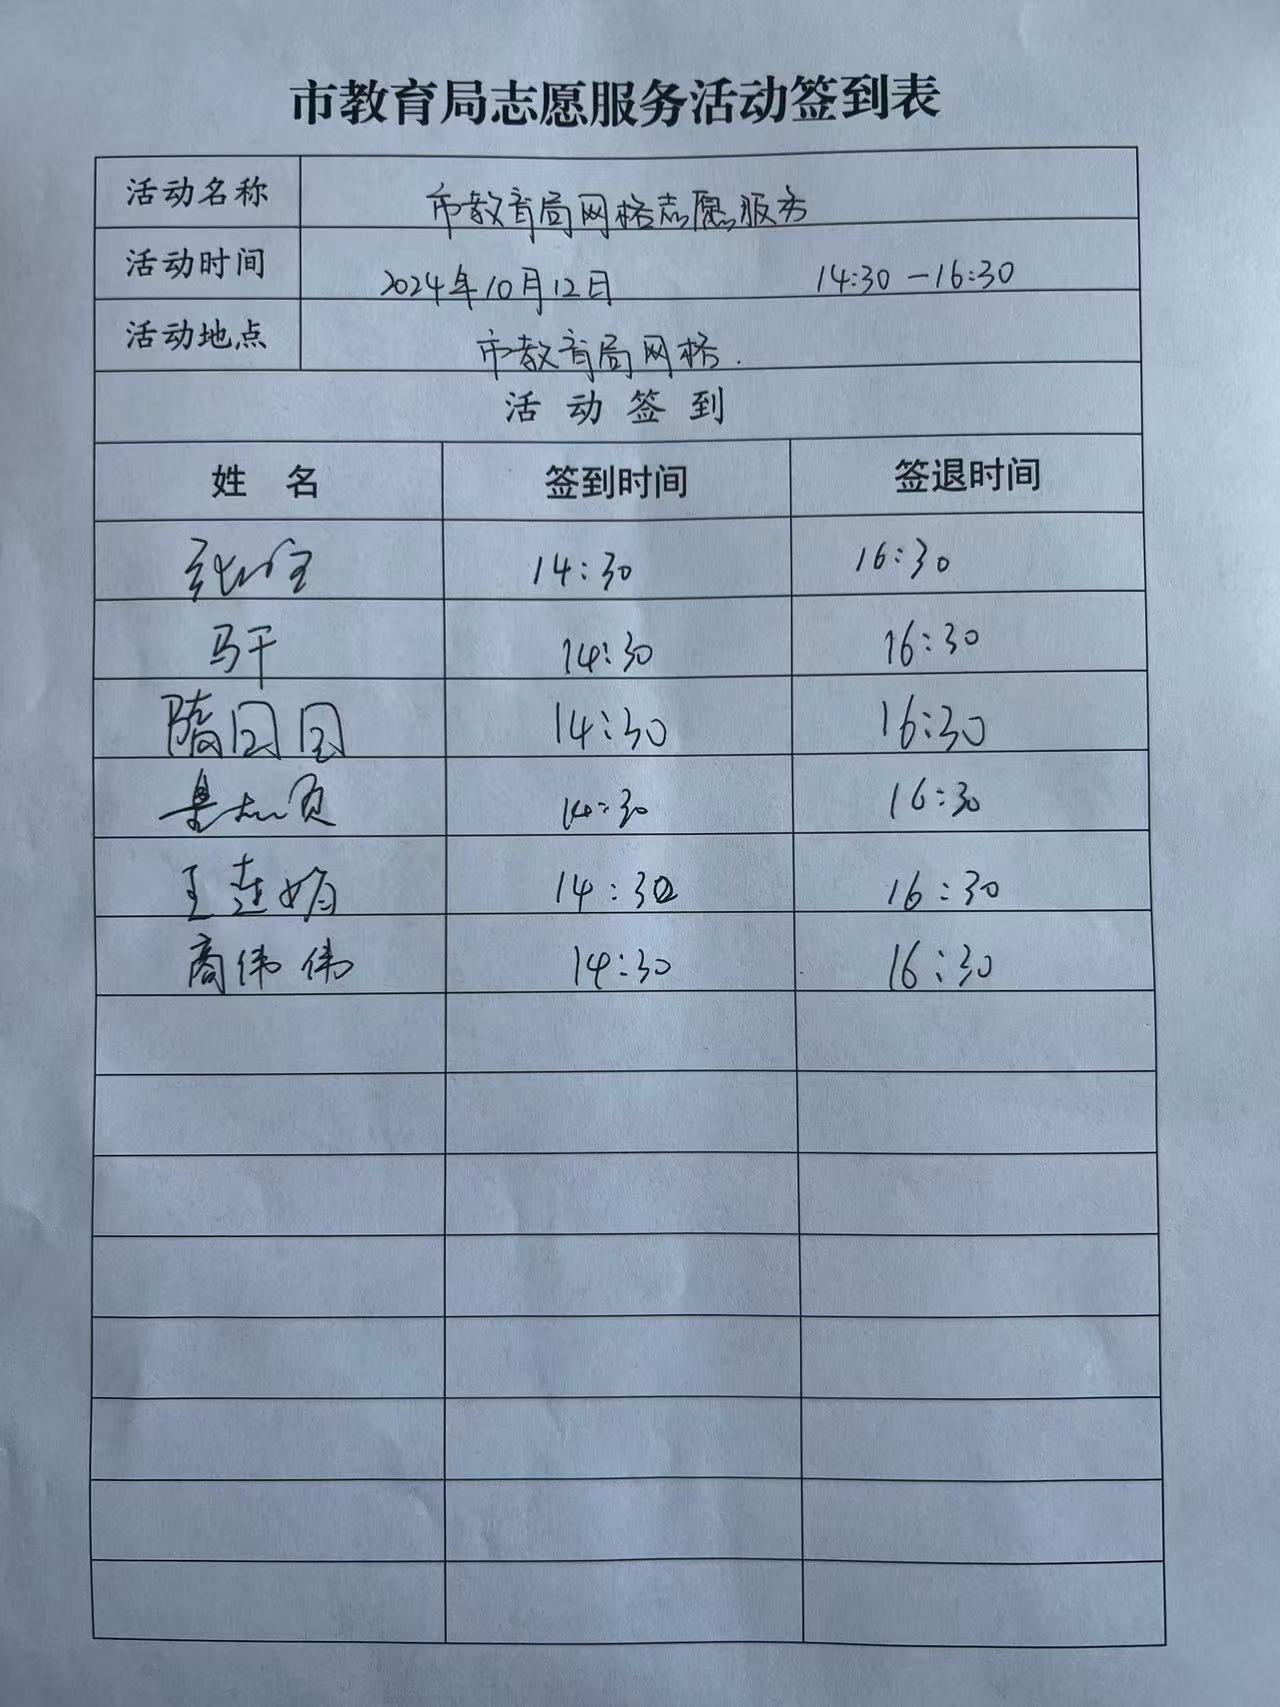 市教育局志愿服务活动签到表
活动名称 市教育局网格志愿服务
活动时间 2024年10月12日 14:30-16:30
活动地点 市教育局网格.
活动签到
姓 名 签到时间 签退时间
14:30 16:30
马干 14:30 16:30
隋国国 14:30 16:30
14:30 16:30
王莲娟 14:30 16:30
商伟伟 14:30 16:30